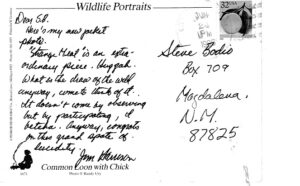 Wildlife Portraits
Dear S.B.
Here's my new jacket
photo.
"Strange Meal" is an extra-
ordinary piece.
What is the draw of the wolf
anyway, come to think of it.
It doesn't come by observing
but by participating, I
betcha. Anyway, congrats
on this grand spate of
lucidity.
Jim
Common Loon with Chick
32
USA
Steve Bodio
Box 709
Magdalena.
N.M.
87825